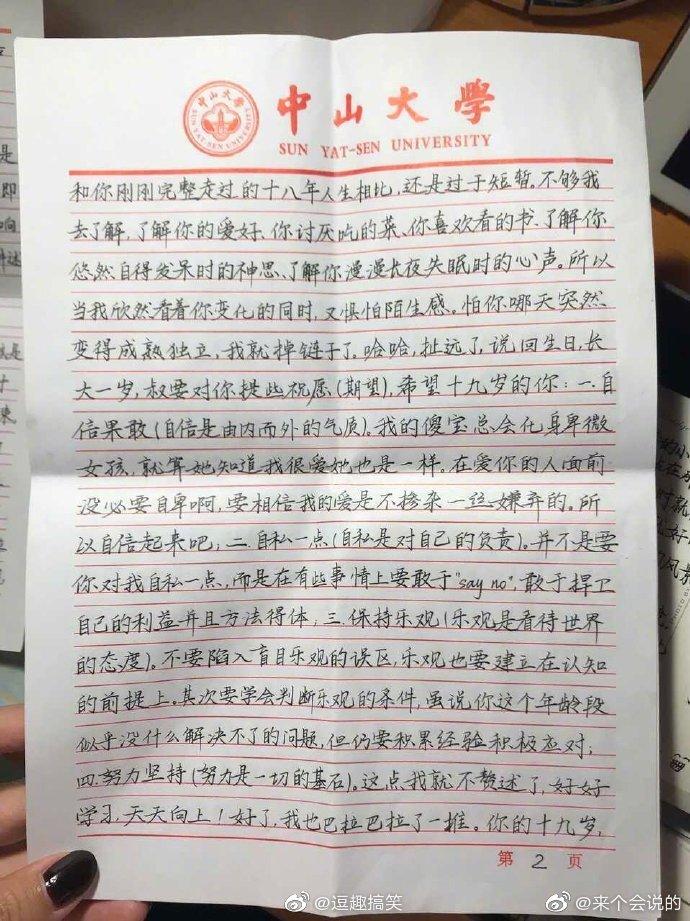 中山大學
SUN YAT-SEN UNIVERSITY
和你刚刚完整走过的十八年人生相比，还是过于短暂。不够我
去了解，了解你的爱好、你讨厌吃的菜、你喜欢看的书、了解你
悠然自得发呆时的神思、了解你漫漫长夜失眠时的心声。所以
当我欣然看着你变化的同时，又惧怕陌生感。怕你哪天突然
变得成熟独立，我就掉链子了。哈哈，扯远了，说回生日，长
大一岁，叔要对你提些祝愿(期望)，希望十九岁的你：一.自
信果敢(自信是由内而外的气质)。我的傻宝总会化身卑微
女孩，就算她知道我很爱她也是一样。在爱你的人面前
没必要自卑啊，要相信我的爱是不掺杂一丝嫌弃的。所
以自信起来吧；二.自私一点(自私是对自己的负责)。并不是要
你对我自私一点，而是在有些事情上要敢于"say no"，敢于捍卫
自己的利益并且方法得体；三.保持乐观(乐观是看待世界
的态度)。不要陷入盲目乐观的误区，乐观也要建立在认知
的前提上。其次要学会判断乐观的条件，虽说你这个年龄段
似乎没什么解决不了的问题，但仍要积累经验积极应对；
四.努力坚持(努力是一切的基石)。这点我就不赘述了，好好
学习，天天向上！好了，我也巴拉巴拉了一堆。你的十九岁，
第 2 页
@逗趣搞笑
@来个会说的